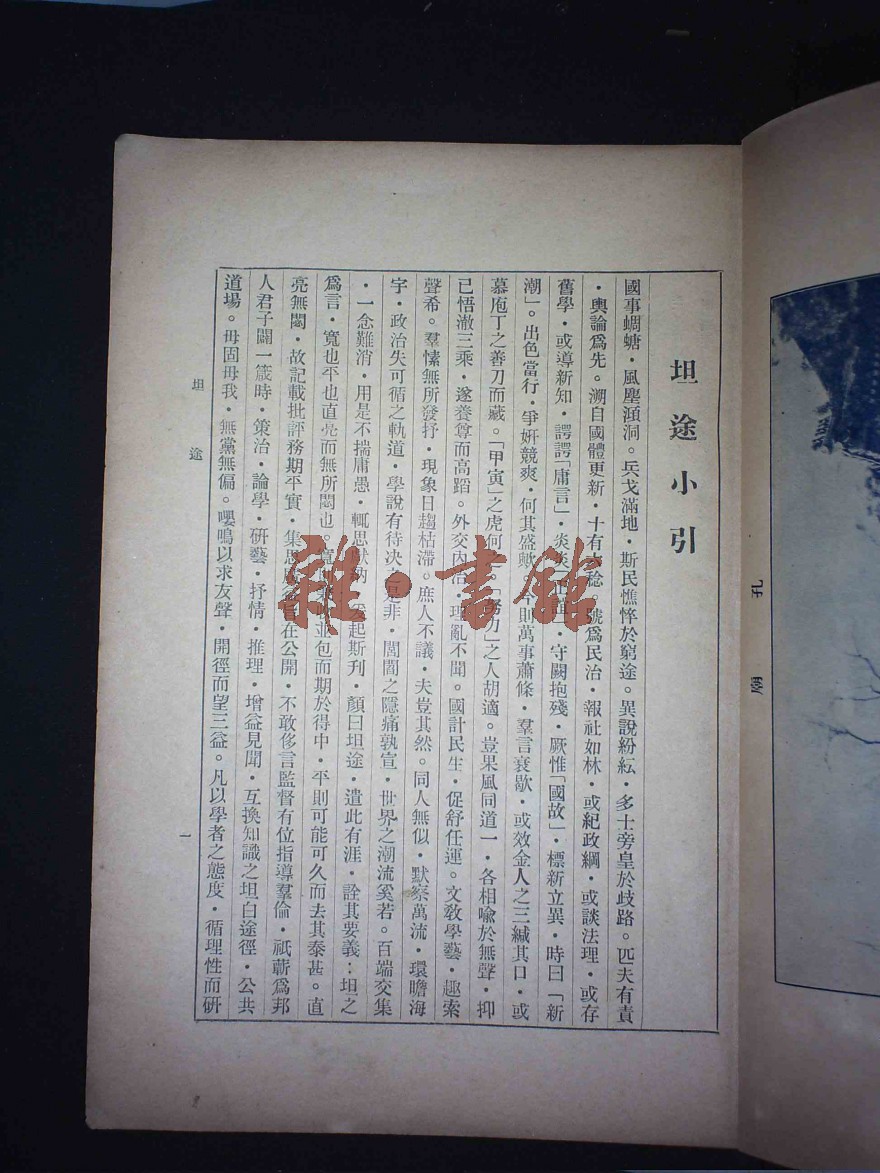 坦途小引
國事蜩螗·風塵澒洞。兵戈滿地·斯民憔悴於窮途。異說紛紜·多士旁皇於歧路。匹夫有責
·輿論爲先。溯自國體更新·十有六稔。號爲民治·報社如林·或紀政綱·或談法理·或存
舊學·或導新知·諤諤「庸言」·炎炎「正誼」·守闕抱殘·厥惟「國故」·標新立異·時曰「新
潮」。出色當行·爭姸競爽·何其盛歟·年則萬事蕭條·羣言衰歇·或效金人之三緘其口·或
慕庖丁之善刀而藏。「甲寅」之虎何之·「努力」之人胡適。豈果風同道一·各相喩於無聲·抑
已悟澈三乘·遂養尊而高蹈。外交內治·理亂不聞。國計民生·促舒任運。文敎學藝·趣索
聲希。羣愫無所發抒·現象日趨枯滯。庶人不議·夫豈其然。同人無似·默察萬流·環瞻海
宇·政治失可循之軌道·學說有待决之是非·閭閻之隱痛孰宣·世界之潮流奚若。百端交集
·一念難消·用是不揣庸愚·輒思獻納·爰起斯刋·顏曰坦途·遣此有涯·詮其要義:坦之
爲言·寬也平也直亮而無所閡也。寬則兼收並包而期於得中·平則可能可久而去其泰甚。直
亮無閡·故記載批評務期平實·集思廣益旨在公開·不敢侈言監督有位指導羣倫·祇蘄爲邦
人君子闢一箴時·策治·論學·硏藝·抒情·推理·增益見聞·互換知識之坦白途徑·公共
道場。毋固毋我·無黨無偏。嚶鳴以求友聲·開徑而望三益。凡以學者之態度·循理性而硏
坦途
一
雜·書館